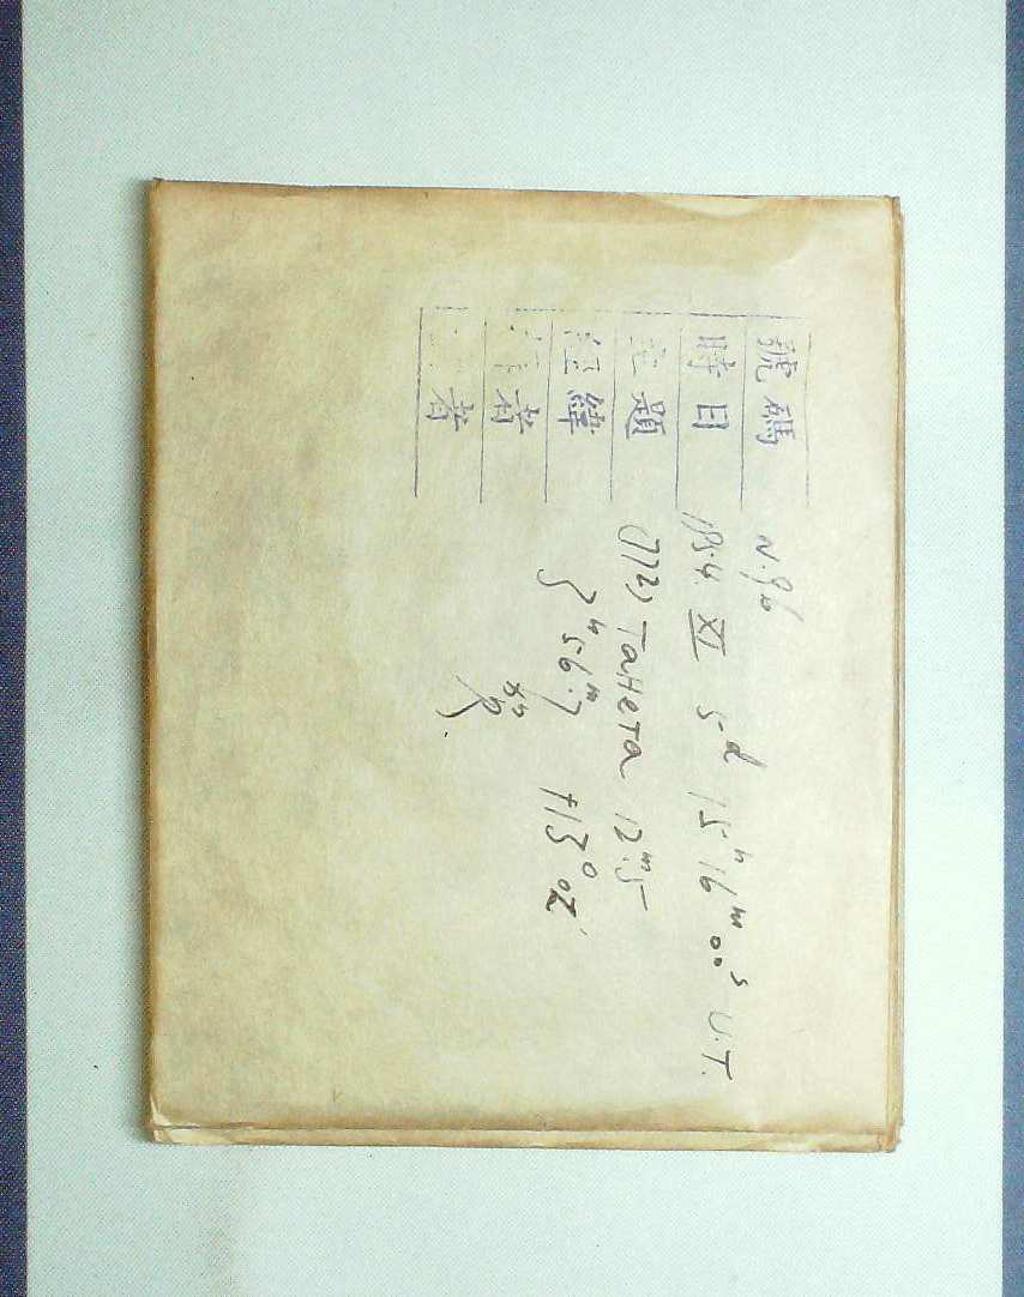 號碼 N.96
時日 1954 XI 5ᵈ 15ʰ16ᵐ00ˢ U.T.
題 (772) Танета 12ᵐ.5
經緯 2ʰ56ᵐ.7 +13°02′
者
者